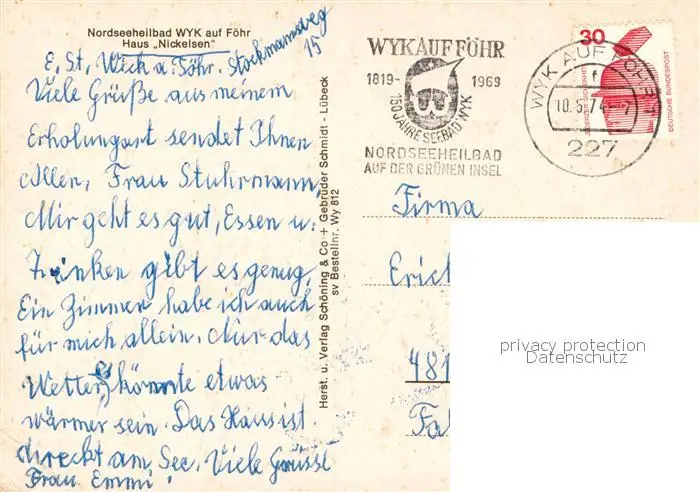 Nordseeheilbad WYK auf Föhr
Haus „Nickelsen"
z. Zt. Wick a. Föhr. Stockmannsweg
15
Viele Grüße aus meinem
Erholungsort sendet Ihnen
Allen, Frau Stuhrmann
Mir geht es gut, Essen u.
Trinken gibt es genug,
Ein Zimmer habe ich auch
für mich allein. Nur das
Wetter könnte etwas
wärmer sein. Das Haus ist
direckt am See. Viele Grüsse
Frau Emmi
Herst. u. Verlag Schöning & Co + Gebrüder Schmidt - Lübeck
sv Bestellnr. Wy 812
WYK AUF FÖHR
1819-
1969
150 JAHRE SEEBAD WYK
NORDSEEHEILBAD
AUF DER GRÜNEN INSEL
WYK AUF FÖHR
f
10.5.74
227
30
DEUTSCHE BUNDESPOST
Firma
Erich
481
privacy protection
Datenschutz